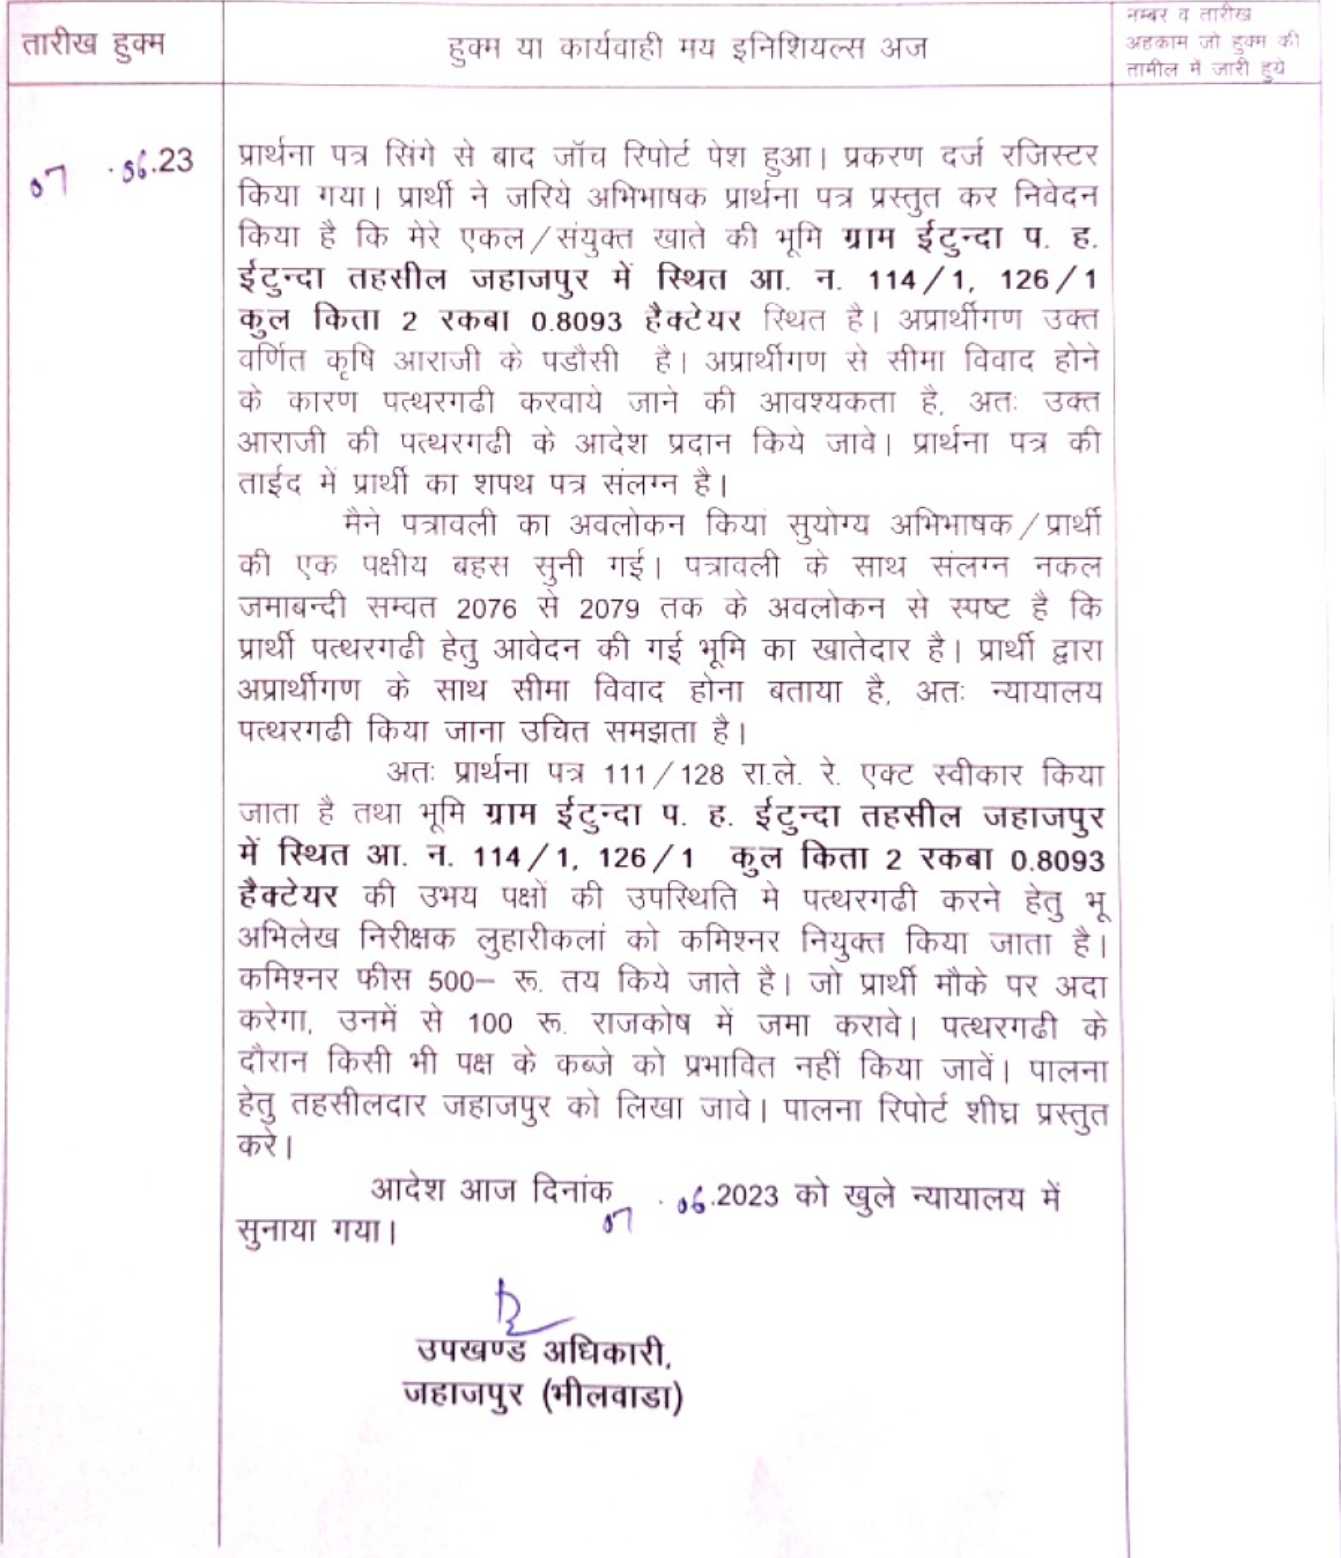 तारीख हुक्म
हुक्म या कार्यवाही मय इनिशियल्स अज
नम्बर व तारीख
अहकाम जो हुक्म की
तामील में जारी हुये
07.06.23
प्रार्थना पत्र सिंगे से बाद जॉच रिपोर्ट पेश हुआ। प्रकरण दर्ज रजिस्टर
किया गया। प्रार्थी ने जरिये अभिभाषक प्रार्थना पत्र प्रस्तुत कर निवेदन
किया है कि मेरे एकल/संयुक्त खाते की भूमि ग्राम ईटुन्दा प. ह.
ईटुन्दा तहसील जहाजपुर में स्थित आ. न. 114/1, 126/1
कुल किता 2 रकबा 0.8093 हैक्टेयर स्थित है। अप्रार्थीगण उक्त
वर्णित कृषि आराजी के पडौसी है। अप्रार्थीगण से सीमा विवाद होने
के कारण पत्थरगढी करवाये जाने की आवश्यकता है, अतः उक्त
आराजी की पत्थरगढी के आदेश प्रदान किये जावे। प्रार्थना पत्र की
ताईद में प्रार्थी का शपथ पत्र संलग्न है।
मैने पत्रावली का अवलोकन किया सुयोग्य अभिभाषक/प्रार्थी
की एक पक्षीय बहस सुनी गई। पत्रावली के साथ संलग्न नकल
जमाबन्दी सम्वत 2076 से 2079 तक के अवलोकन से स्पष्ट है कि
प्रार्थी पत्थरगढी हेतु आवेदन की गई भूमि का खातेदार है। प्रार्थी द्वारा
अप्रार्थीगण के साथ सीमा विवाद होना बताया है, अतः न्यायालय
पत्थरगढी किया जाना उचित समझता है।
अतः प्रार्थना पत्र 111/128 रा.ले. रे. एक्ट स्वीकार किया
जाता है तथा भूमि ग्राम ईटुन्दा प. ह. ईटुन्दा तहसील जहाजपुर
में स्थित आ. न. 114/1, 126/1 कुल किता 2 रकबा 0.8093
हैक्टेयर की उभय पक्षों की उपस्थिति मे पत्थरगढी करने हेतु भू
अभिलेख निरीक्षक लुहारीकलां को कमिश्नर नियुक्त किया जाता है।
कमिश्नर फीस 500– रू. तय किये जाते है। जो प्रार्थी मौके पर अदा
करेगा, उनमें से 100 रू. राजकोष में जमा करावे। पत्थरगढी के
दौरान किसी भी पक्ष के कब्जे को प्रभावित नहीं किया जावें। पालना
हेतु तहसीलदार जहाजपुर को लिखा जावे। पालना रिपोर्ट शीघ्र प्रस्तुत
करे।
आदेश आज दिनांक 07.06.2023 को खुले न्यायालय में
सुनाया गया।
उपखण्ड अधिकारी,
जहाजपुर (भीलवाडा)